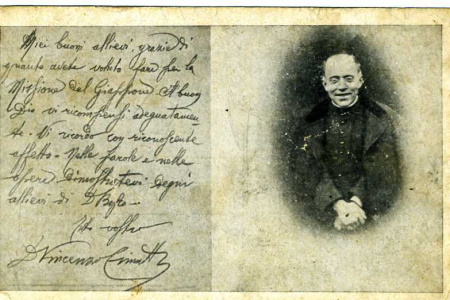 Miei buoni allievi, grazie di
quanto avete voluto fare per la
Missione del Giappone. Il buon
Dio vi ricompensi adeguatamen
te. Vi ricordo con riconoscente
affetto. Nelle parole e nelle
opere dimostratevi degni
allievi di D Bosco.
Vostro
D Vincenzo Cimatti